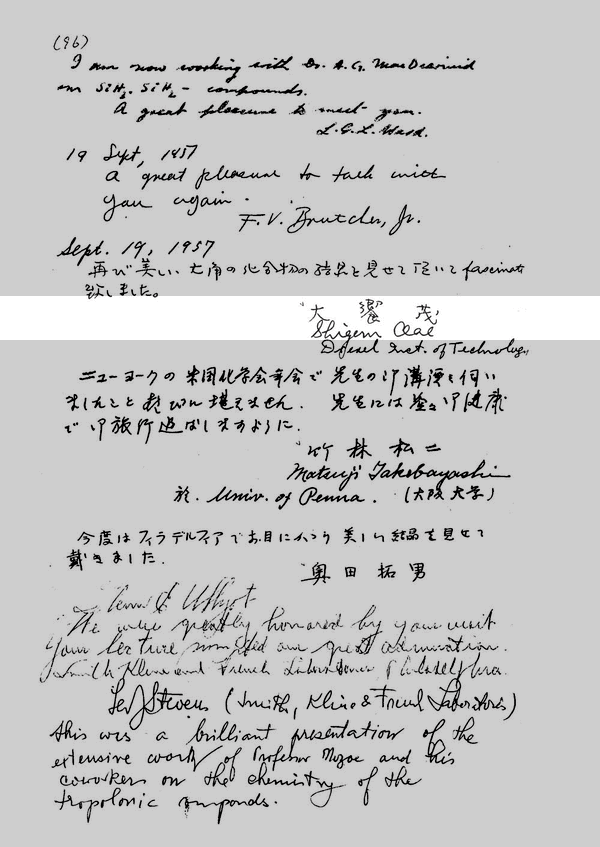 (96)
I am now working with Dr. A. G. MacDiarmid
on SiH3. SiH2 - compounds.
A great pleasure to meet you.
L. G. L.
19 Sept, 1957
A great pleasure to talk with
you again.
F. V. Brutcher, Jr.
Sept. 19, 1957
再び美しい六角の化合物の結晶を見せて頂いて fascinate
致しました。
大饗 茂
Shigeru Oae
Drexel Inst. of Technology
ニューヨークの米国化学会年会で先生の御講演を伺い
ましたこと喜びに堪えません. 先生には益々御健康
で御旅行遊ばしますように.
竹林松二
Matsuji Takebayashi
於. Univ. of Penna. (大阪大学)
今度はフィラデルフィアでお目にかかり美しい結晶を見せて
戴きました.
奥田拓男
We were greatly honored by your visit
Your lecture our great admiration.
Smith Kline and French Laboratories Philadelphia.
Stevens (Smith, Kline & French Laboratories)
This was a brilliant presentation of the
extensive work of Professor Nozoe and his
coworkers on the chemistry of the
tropolonic compounds.